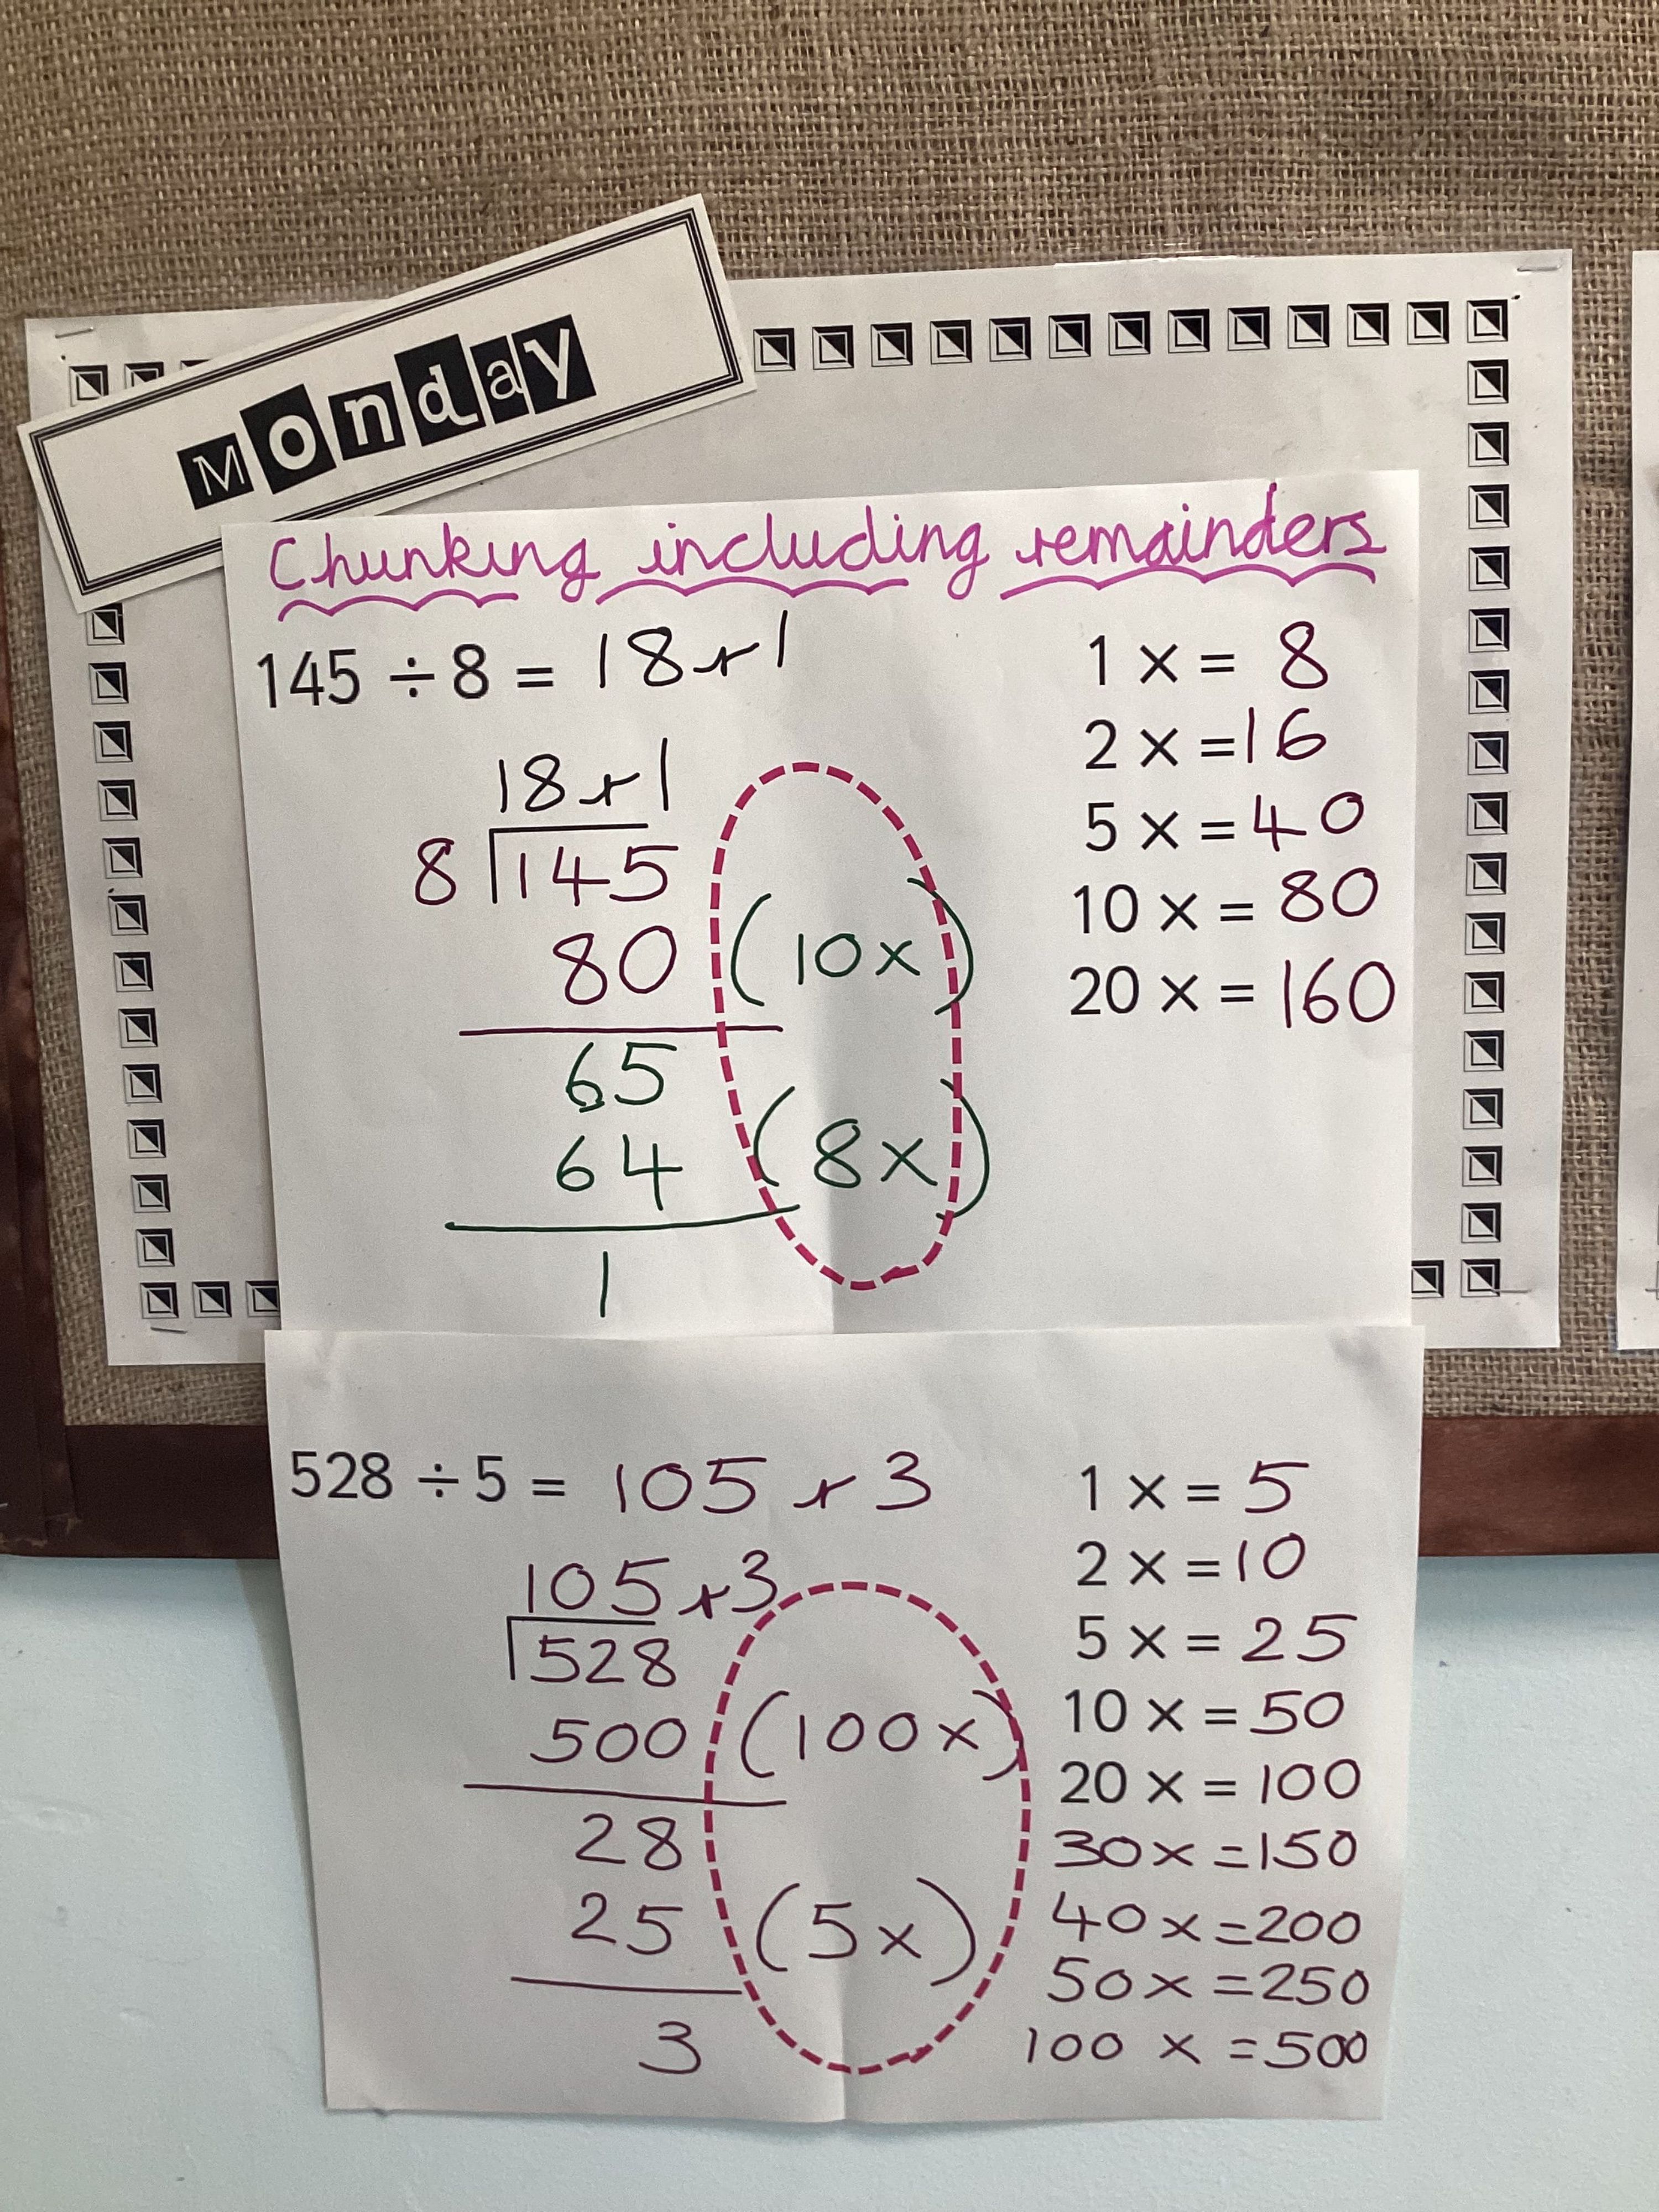 Monday
Chunking including remainders
145 ÷ 8 = 18 r 1
1 × = 8
2 × = 16
5 × = 40
10 × = 80
20 × = 160
18 r 1
8 145
80 (10×)
65
64 (8×)
1
528 ÷ 5 = 105 r 3
1 × = 5
2 × = 10
5 × = 25
10 × = 50
20 × = 100
30 × = 150
40 × = 200
50 × = 250
100 × = 500
105 r 3
528
500 (100×)
28
25 (5×)
3